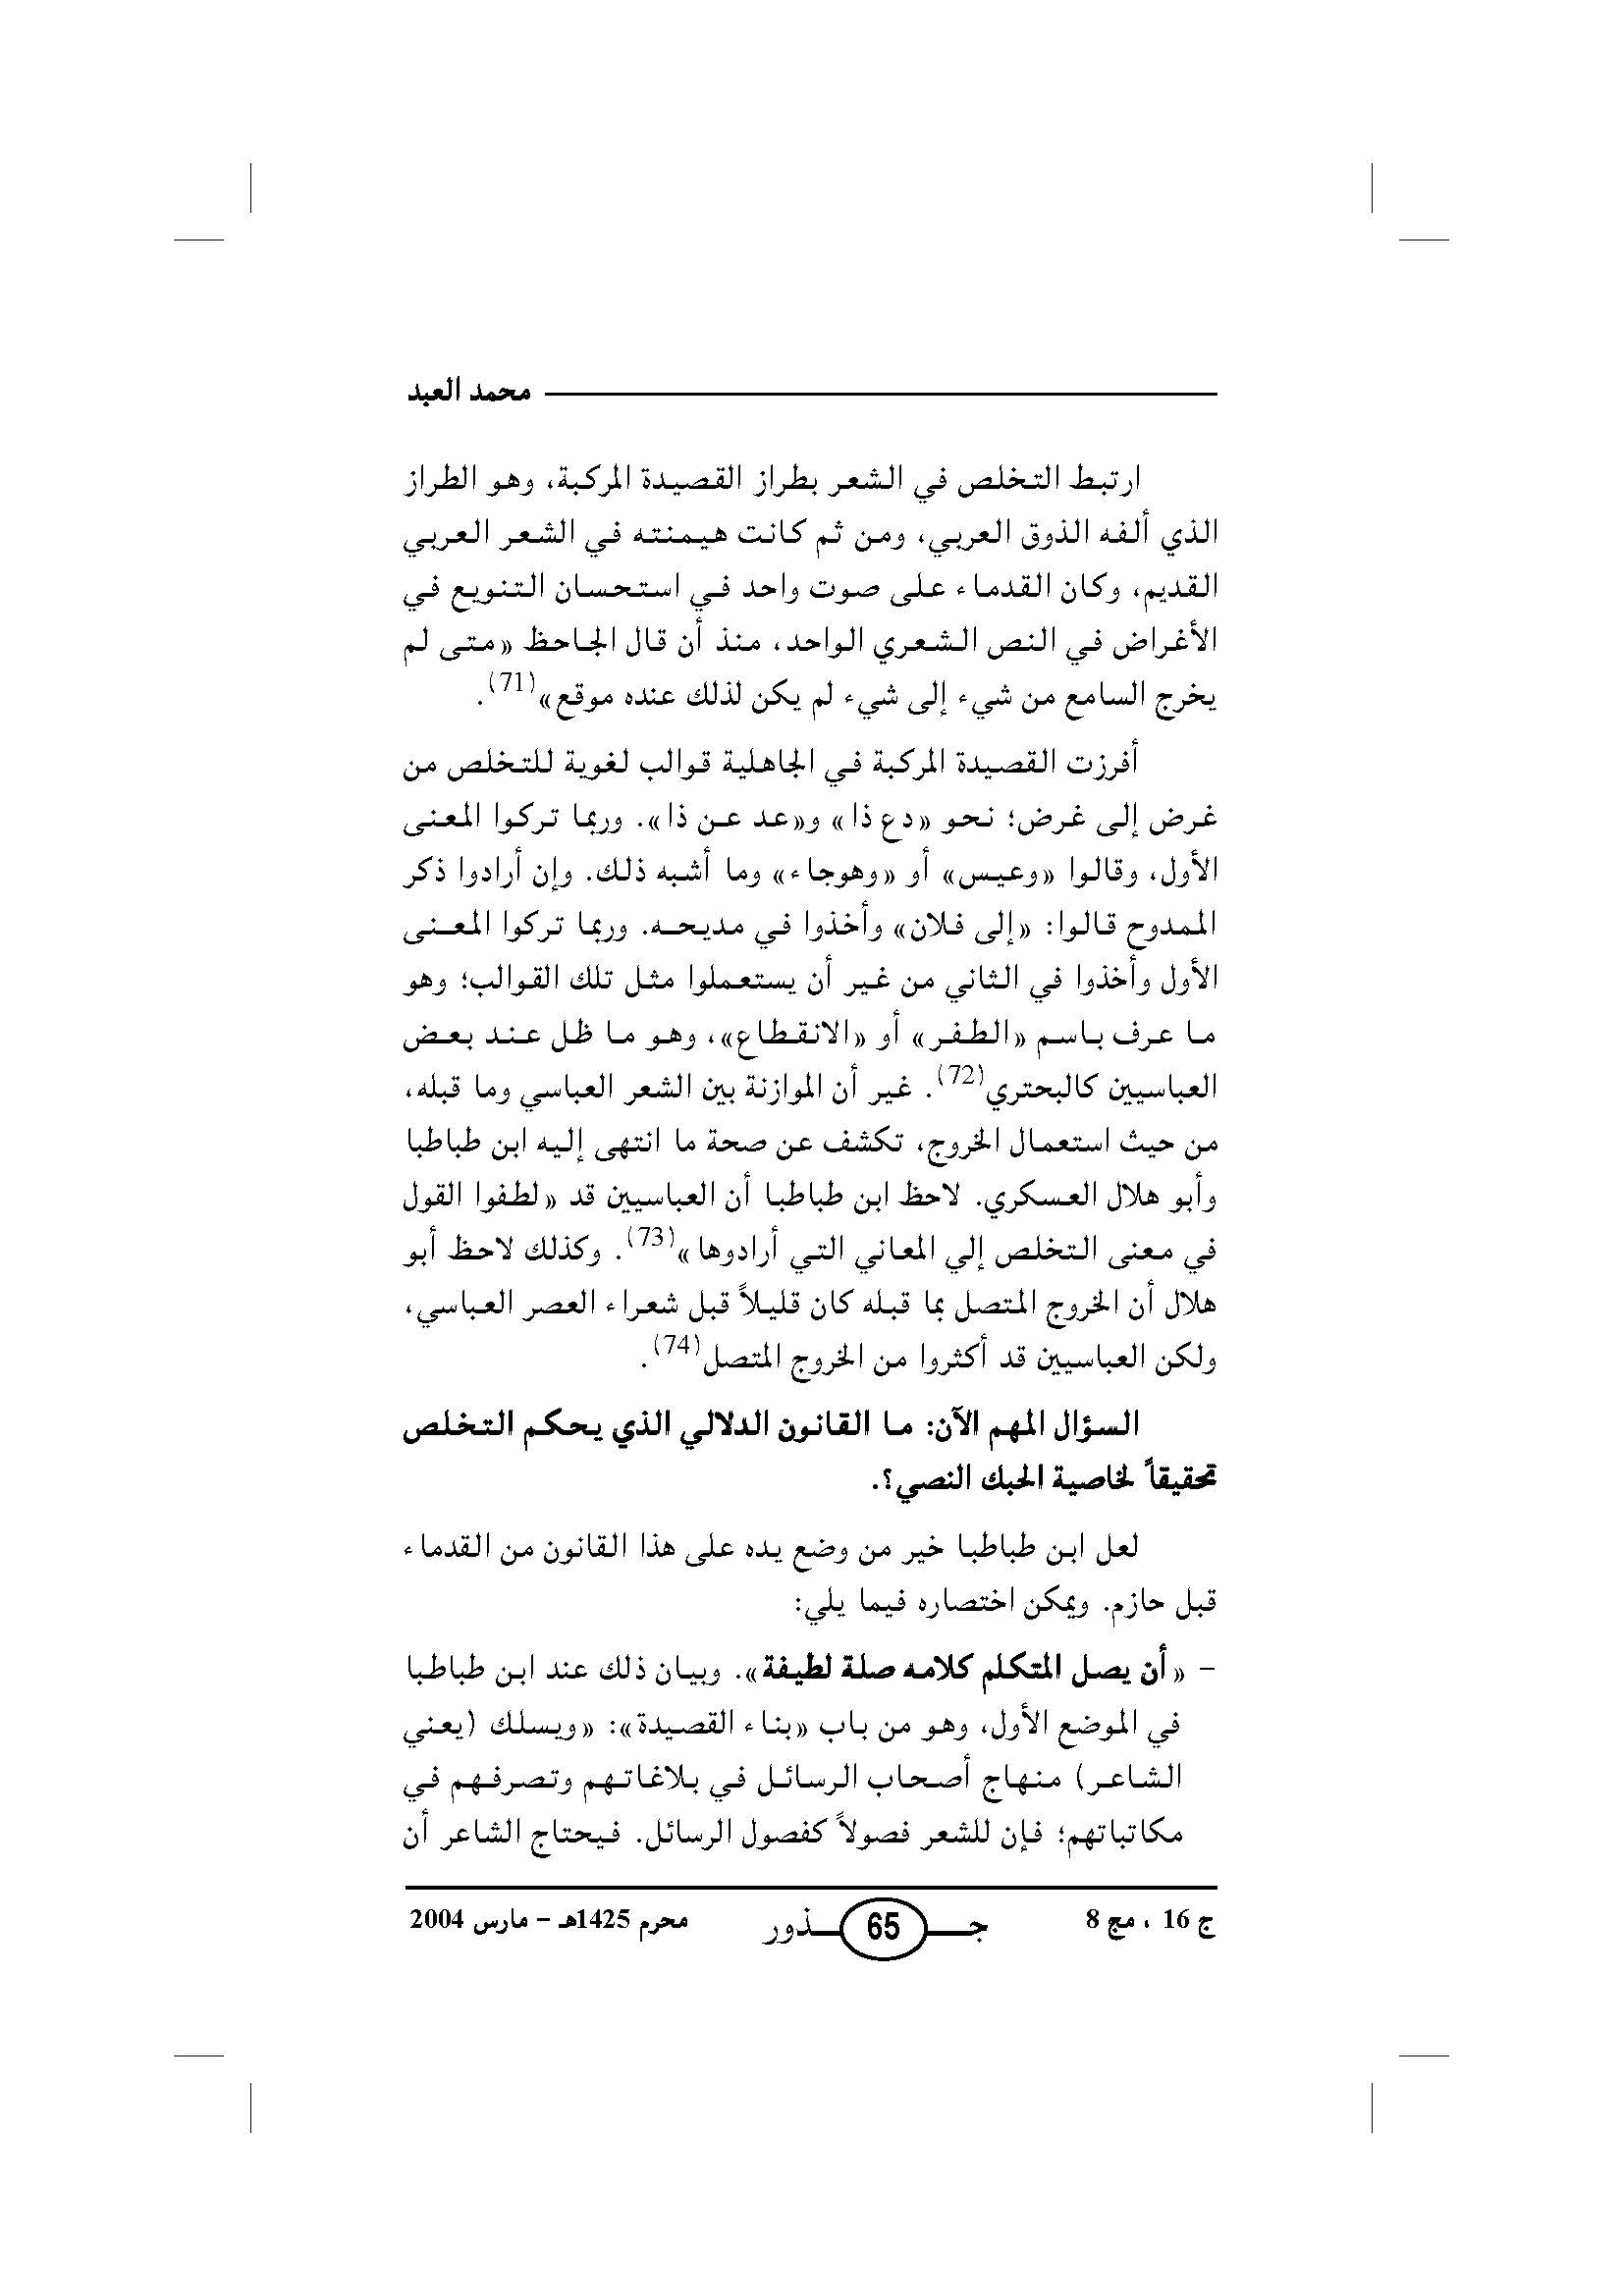 محمد العبد
ارتبط التخلص في الشعر بطراز القصيدة المركبة، وهو الطراز
الذي ألفه الذوق العربي، ومن ثم كانت هيمنته في الشعر العربي
القديم، وكان القدماء على صوت واحد في استحسان التنويع في
الأغراض في النص الشعري الواحد، منذ أن قال الجاحظ «متى لم
يخرج السامع من شيء إلى شيء لم يكن لذلك عنده موقع»(71).
أفرزت القصيدة المركبة في الجاهلية قوالب لغوية للتخلص من
غرض إلى غرض؛ نحو «دع ذا» و«عد عن ذا». وربما تركوا المعنى
الأول، وقالوا «وعيس» أو «وهوجاء» وما أشبه ذلك. وإن أرادوا ذكر
الممدوح قالوا: «إلى فلان» وأخذوا في مديحه. وربما تركوا المعنى
الأول وأخذوا في الثاني من غير أن يستعملوا مثل تلك القوالب؛ وهو
ما عرف باسم «الطفر» أو «الانقطاع»، وهو ما ظل عند بعض
العباسيين كالبحتري(72). غير أن الموازنة بين الشعر العباسي وما قبله،
من حيث استعمال الخروج، تكشف عن صحة ما انتهى إليه ابن طباطبا
وأبو هلال العسكري. لاحظ ابن طباطبا أن العباسيين قد «لطفوا القول
في معنى التخلص إلي المعاني التي أرادوها»(73). وكذلك لاحظ أبو
هلال أن الخروج المتصل بما قبله كان قليلاً قبل شعراء العصر العباسي،
ولكن العباسيين قد أكثروا من الخروج المتصل(74).
السؤال المهم الآن: ما القانون الدلالي الذي يحكم التخلص
تحقيقاً لخاصية الحبك النصي؟.
لعل ابن طباطبا خير من وضع يده على هذا القانون من القدماء
قبل حازم. ويمكن اختصاره فيما يلي:
- «أن يصل المتكلم كلامه صلة لطيفة». وبيان ذلك عند ابن طباطبا
في الموضع الأول، وهو من باب «بناء القصيدة»: «ويسلك (يعني
الشاعر) منهاج أصحاب الرسائل في بلاغاتهم وتصرفهم في
مكاتباتهم؛ فإن للشعر فصولاً كفصول الرسائل. فيحتاج الشاعر أن
ج 16 ، مج 8 جـــ 65 ـــذور محرم 1425هـ - مارس 2004